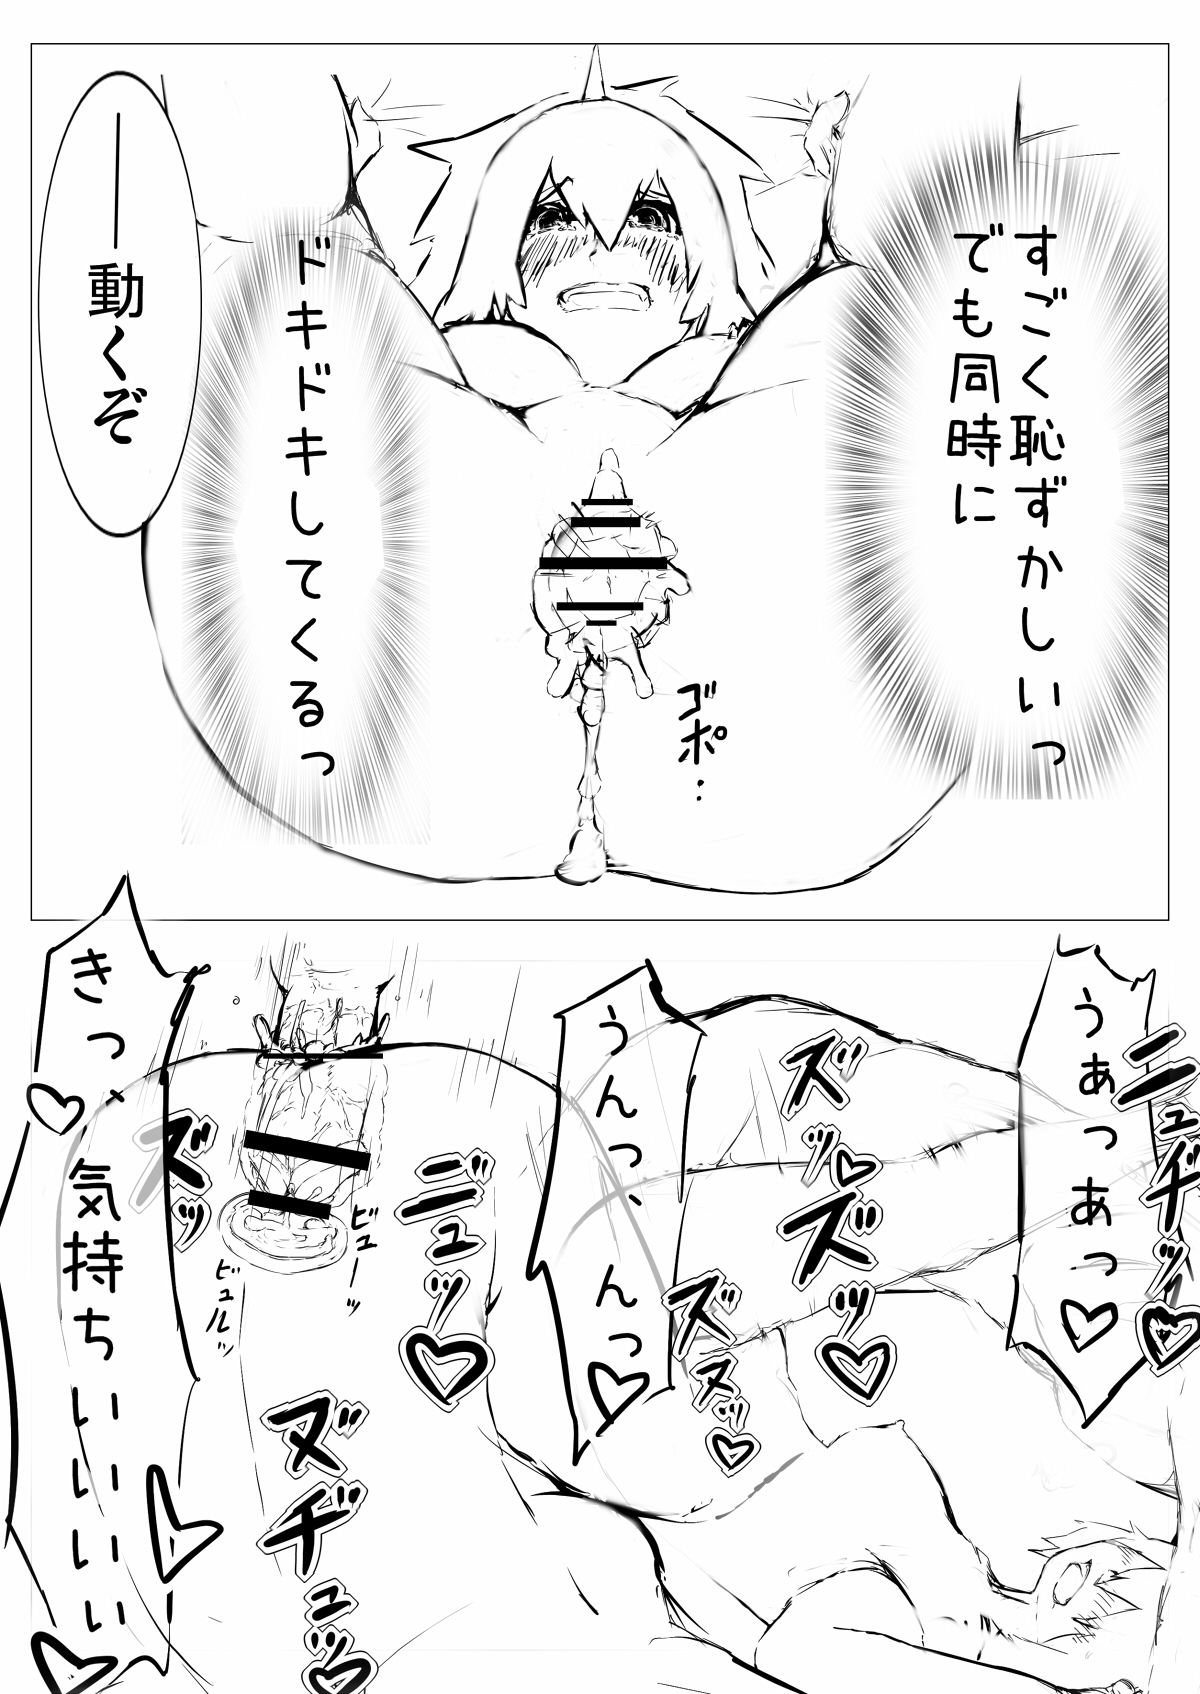 すごく恥ずかしいっ
でも同時に
ドキドキしてくるっ
──動くぞ
ゴポ…
うぁっあっ♡
ニュヂッ♡
ズッ♡ズッ♡
うんっ、んっ♡
ズヌッ♡
ニュッ♡
ビューッ
ビュルッ
ズッ
ヌヂュッ♡
きっ、気持ちいいいいい♡